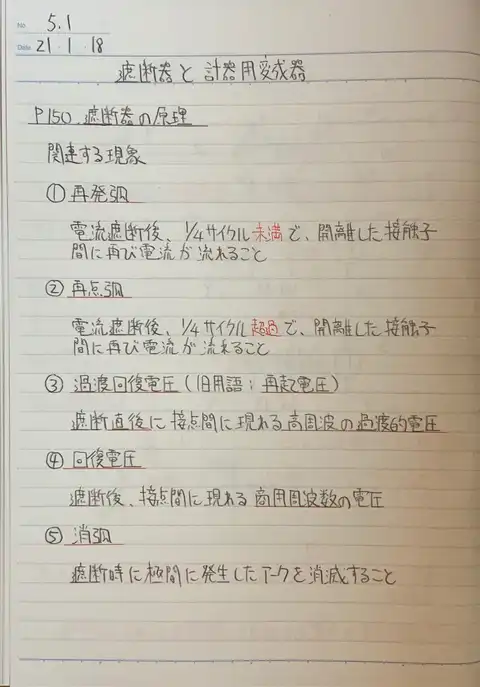 No. 5.1
Date 21・1・18
遮断器と計器用変成器
P150.遮断器の原理
関連する現象
①再発弧
電流遮断後、1/4サイクル未満で、開離した接触子
間に再び電流が流れること
②再点弧
電流遮断後、1/4サイクル超過で、開離した接触子
間に再び電流が流れること
③過渡回復電圧(旧用語:再起電圧)
遮断直後に接点間に現れる高周波の過渡的電圧
④回復電圧
遮断後、接点間に現れる商用周波数の電圧
⑤消弧
遮断時に極間に発生したアークを消滅すること